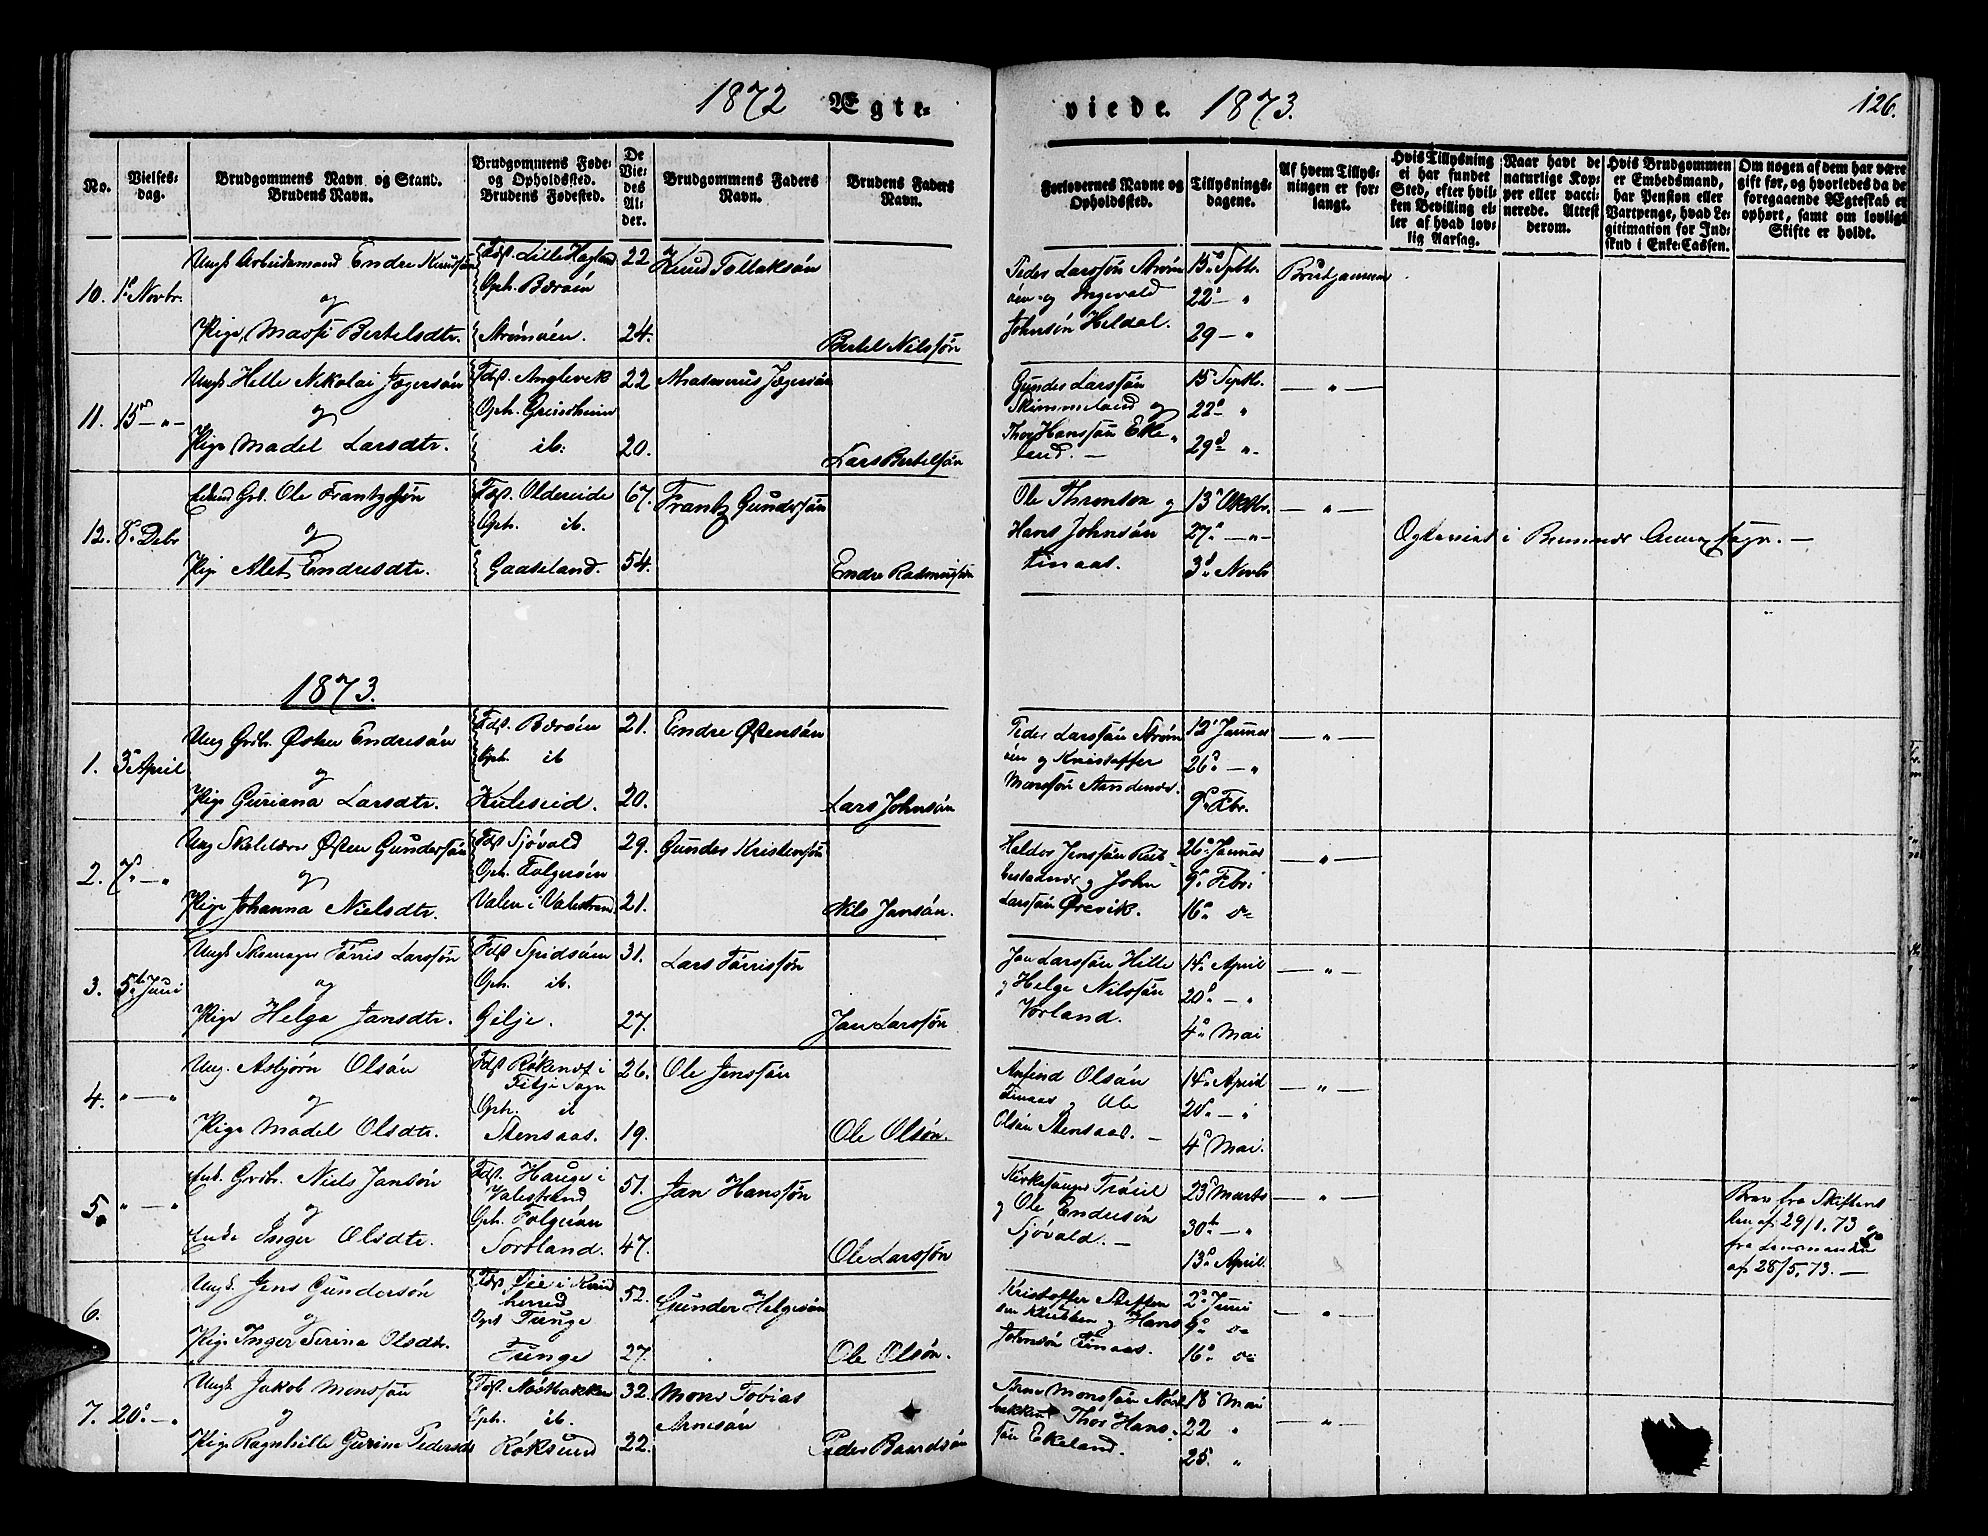 1872 Ægte-
viede. 1873.
126.
No.
Vielses-
dag.
Brudgommens Navn og Stand.
Brudens Navn.
Brudgommens Føde-
og Opholdssted.
Brudens Fødested.
De
Vie-
des
Al-
der.
Brudgommens Faders
Navn.
Brudens Faders
Navn.
Forlovernes Navne og
Opholdssted.
Tillysnings-
dagene.
Af hvem Tillys-
ningen er for-
langt.
Hvis Tillysning
ei har fundet
Sted, efter hvil-
ken Bevilling el-
ler af hvad lov-
lig Aarsag.
Naar havt de
naturlige Kop-
per eller vacci-
nerede. Attest
derom.
Hvis Brudgommen
er Embedsmand,
har Pension eller
Vartpenge, hvad Le-
gitimation for Ind-
skud i Enke-Cassen.
Om nogen af dem har være
gift før, og hvorledes da de
foregaaende Ægteskab er
ophørt, samt om lovligt
Skifte er holdt.
10. 1ste Novbr.
Ungk. Arbeidsmand Endre Knudsøn
og
Pige Massi Bertelsdtr.
Fdst. Lille Hagland
Oph. Børøen
Strømøen.
22
24.
Knud Tollaksøn
Bertel Nilssøn
Peder Larssøn Strøm
øen og Ingevald
Johnsøn Heldal.
15. Septbr.
22 — "
29 — "
Brudgommen
11. 15 — " —
Ungk. Helle Nikolai Jægersøn
og
Pige Madel Larsdtr.
Fdst. Anglevik
Oph. Grindheim
ib.
22
20.
Rasmus Jægersøn
Lars Bertelsøn
Gunder Larssøn
Skimmeland og
Thor Hanssøn Eke-
land. —
15 Septbr.
22 "
29 "
— " —
12. 8. Decbr
Enkem. Grb. Ole Frantzsøn
og
Pige Alet Endresdtr.
Fdst. Oldereide
Oph. ib.
Gaaseland.
67.
54.
Frantz Gundersøn
Endre Rasmussøn
Ole Thronsen og
Hans Johnsøn
Finaas.
13 Oktbr.
27. — " —
3 Novbr
— " —
Ogteviet i Bremnes Annex sogn. —
1873.
1. 3 April
Ung Grdbr. Østen Endresøn
og
Pige Guriana Larsdtr.
Fdst. Børøen
Oph. ib
Kuleseid.
21.
20.
Endre Østensøn
Lars Johnsøn
Peder Larssøn Strøm
øen og Kristoffer
Monssøn Sandenes.
12 Januar
26. — "
9. Fbr.
— " —
2. 7. — "
Ung Skolelærer Østen Gundersøn
og
Pige Johanna Nielsdtr.
Fdst Sjøvold
Oph. Folgerøen
Valen i Valestrand
29.
21.
Gunder Kristensøn
Nils Jansøn.
Haldor Jenssøn
og John
Larssøn Ørevik.
26. Januar
9. Febr.
16. do
— " —
3. 5te Juni
Ungk Skomager Tørris Larssøn
og
Pige Helga Jansdtr.
Fdst Spidsøen
Oph. ib.
Gilje.
31.
27.
Lars Tørrissøn
Jan Larssøn
Jan Larssøn Hille
og Helge Nilssøn
Vorland.
14. April
20. — "
4. Mai
— " —
4. " — "
Ung. Asbjørn Olsøn
og
Pige Madel Olsdtr.
Fdst Røkenes i
Fitje Sogn
Oph. ib
Stensaas.
26.
19.
Ole Jenssøn
Ole Olsøn.
Anfind Olsøn
Finaas og Ole
Olsøn Stensaas. —
14. April
20. — "
4 Mai.
— " —
5. " — "
Enk. Grdbr. Niels Jansøn
og
Enke Inger Olsdtr.
Fdst. Hauge i
Valestrand
Oph. Folgerøen
Sortland.
51.
47.
Jan Hanssøn
Ole Larssøn
Kirkesanger Trøiel
og Ole Endresøn
Sjøvold. —
23 Marts
30te — "
13. April.
— " —
Brev fra Skifteret
ten af 29/1. 73 og
fra Lensmanden
af 28/5. 73. —
6.
Ungk. Jens Gundersøn
og
Pige Inger Serina Olsdtr.
Fdst Øie i Kvind
herred
Oph Tunge
Tunge
52.
27.
Gunder Helgesøn
Ole Olsøn.
Kristoffer Steffen
sen Klubben og Hans
Johnsøn Finaas.
2. Juni
9. do
16. do
— " —
7. 20. — "
Ungk. Jakob Monssøn
og
Pige Ragnhille Gurine Pedersdt
Fdst. Nøsbakken
Oph. ib.
Røksund
32.
22.
Mons Tobias
Arnesøn
Peder Baardsøn
Arne Monssøn Nøs
bakken Thor Hans-
søn Ekeland.
18 Mai
22 "
25. "
— " —